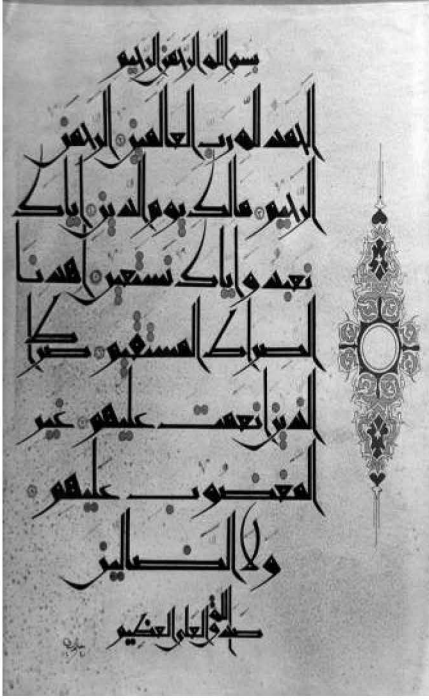 بسم الله الرحمن الرحيم
الحمد لله رب العالمين الرحمن
الرحيم مالك يوم الدين اياك
نعبد واياك نستعين اهدنا
الصراط المستقيم صراط
الذين انعمت عليهم غير
المغضوب عليهم
ولا الضالين
صدق الله العلي العظيم